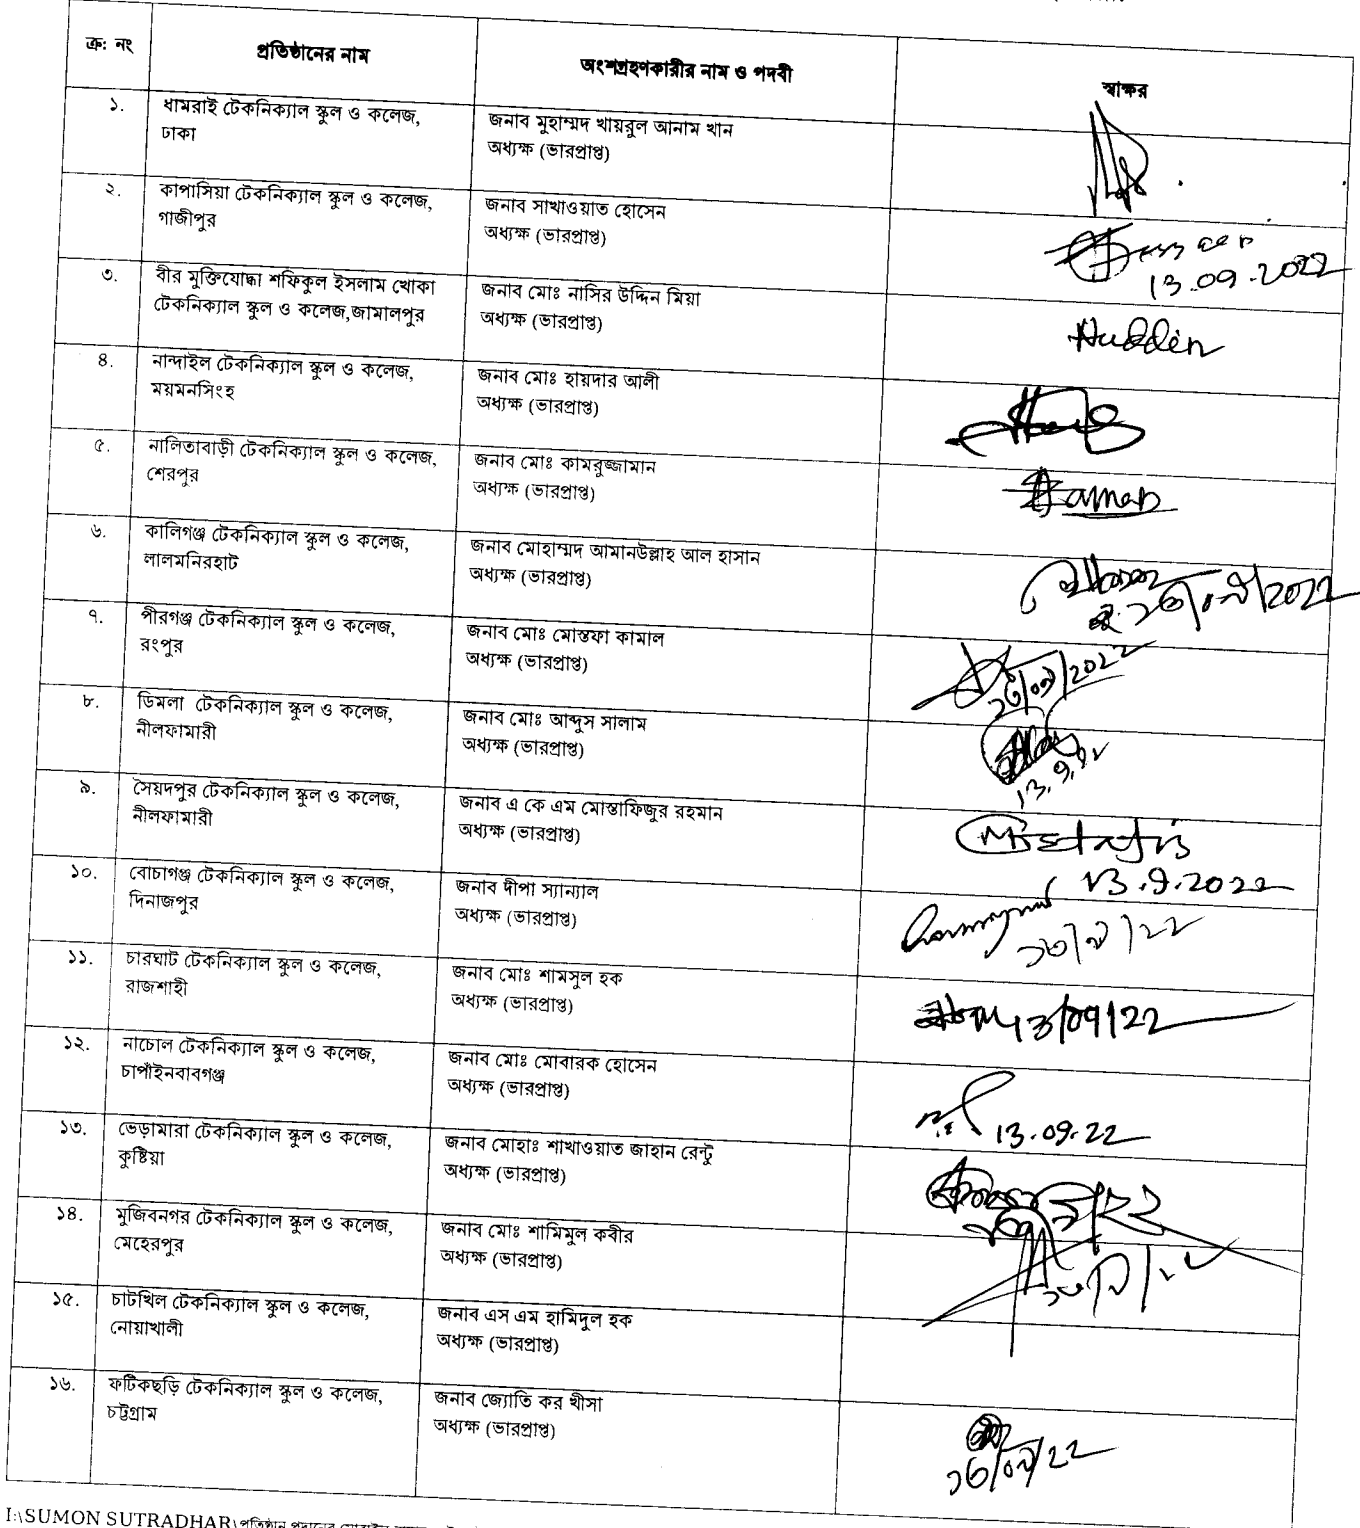 ক্র: নং
প্রতিষ্ঠানের নাম
অংশগ্রহণকারীর নাম ও পদবী
স্বাক্ষর
১.
ধামরাই টেকনিক্যাল স্কুল ও কলেজ,
ঢাকা
জনাব মুহাম্মদ খায়রুল আনাম খান
অধ্যক্ষ (ভারপ্রাপ্ত)
২.
কাপাসিয়া টেকনিক্যাল স্কুল ও কলেজ,
গাজীপুর
জনাব সাখাওয়াত হোসেন
অধ্যক্ষ (ভারপ্রাপ্ত)
13.09.2022
৩.
বীর মুক্তিযোদ্ধা শফিকুল ইসলাম খোকা
টেকনিক্যাল স্কুল ও কলেজ,জামালপুর
জনাব মোঃ নাসির উদ্দিন মিয়া
অধ্যক্ষ (ভারপ্রাপ্ত)
Huddin
৪.
নান্দাইল টেকনিক্যাল স্কুল ও কলেজ,
ময়মনসিংহ
জনাব মোঃ হায়দার আলী
অধ্যক্ষ (ভারপ্রাপ্ত)
৫.
নালিতাবাড়ী টেকনিক্যাল স্কুল ও কলেজ,
শেরপুর
জনাব মোঃ কামরুজ্জামান
অধ্যক্ষ (ভারপ্রাপ্ত)
৬.
কালিগঞ্জ টেকনিক্যাল স্কুল ও কলেজ,
লালমনিরহাট
জনাব মোহাম্মদ আমানউল্লাহ আল হাসান
অধ্যক্ষ (ভারপ্রাপ্ত)
১৩/০৯/2022
৭.
পীরগঞ্জ টেকনিক্যাল স্কুল ও কলেজ,
রংপুর
জনাব মোঃ মোস্তফা কামাল
অধ্যক্ষ (ভারপ্রাপ্ত)
১৩/০৯/২০২২
৮.
ডিমলা টেকনিক্যাল স্কুল ও কলেজ,
নীলফামারী
জনাব মোঃ আব্দুস সালাম
অধ্যক্ষ (ভারপ্রাপ্ত)
13.9.22
৯.
সৈয়দপুর টেকনিক্যাল স্কুল ও কলেজ,
নীলফামারী
জনাব এ কে এম মোস্তাফিজুর রহমান
অধ্যক্ষ (ভারপ্রাপ্ত)
13.9.2022
১০.
বোচাগঞ্জ টেকনিক্যাল স্কুল ও কলেজ,
দিনাজপুর
জনাব দীপা স্যান্যাল
অধ্যক্ষ (ভারপ্রাপ্ত)
১৩/৯/২২
১১.
চারঘাট টেকনিক্যাল স্কুল ও কলেজ,
রাজশাহী
জনাব মোঃ শামসুল হক
অধ্যক্ষ (ভারপ্রাপ্ত)
13/09/22
১২.
নাচোল টেকনিক্যাল স্কুল ও কলেজ,
চাপাঁইনবাবগঞ্জ
জনাব মোঃ মোবারক হোসেন
অধ্যক্ষ (ভারপ্রাপ্ত)
13.09.22
১৩.
ভেড়ামারা টেকনিক্যাল স্কুল ও কলেজ,
কুষ্টিয়া
জনাব মোহাঃ শাখাওয়াত জাহান রেন্টু
অধ্যক্ষ (ভারপ্রাপ্ত)
১৪.
মুজিবনগর টেকনিক্যাল স্কুল ও কলেজ,
মেহেরপুর
জনাব মোঃ শামিমুল কবীর
অধ্যক্ষ (ভারপ্রাপ্ত)
১৩/৯/২২
১৫.
চাটখিল টেকনিক্যাল স্কুল ও কলেজ,
নোয়াখালী
জনাব এস এম হামিদুল হক
অধ্যক্ষ (ভারপ্রাপ্ত)
১৬.
ফটিকছড়ি টেকনিক্যাল স্কুল ও কলেজ,
চট্টগ্রাম
জনাব জ্যোতি কর খীসা
অধ্যক্ষ (ভারপ্রাপ্ত)
১৩/০৯/২২
I:\SUMON SUTRADHAR\